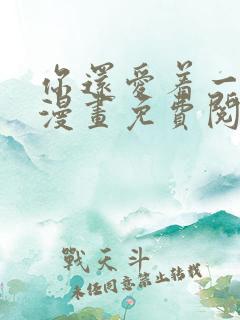 你還愛着一
漫畫免費閱
戰天斗
未经同意禁止转载